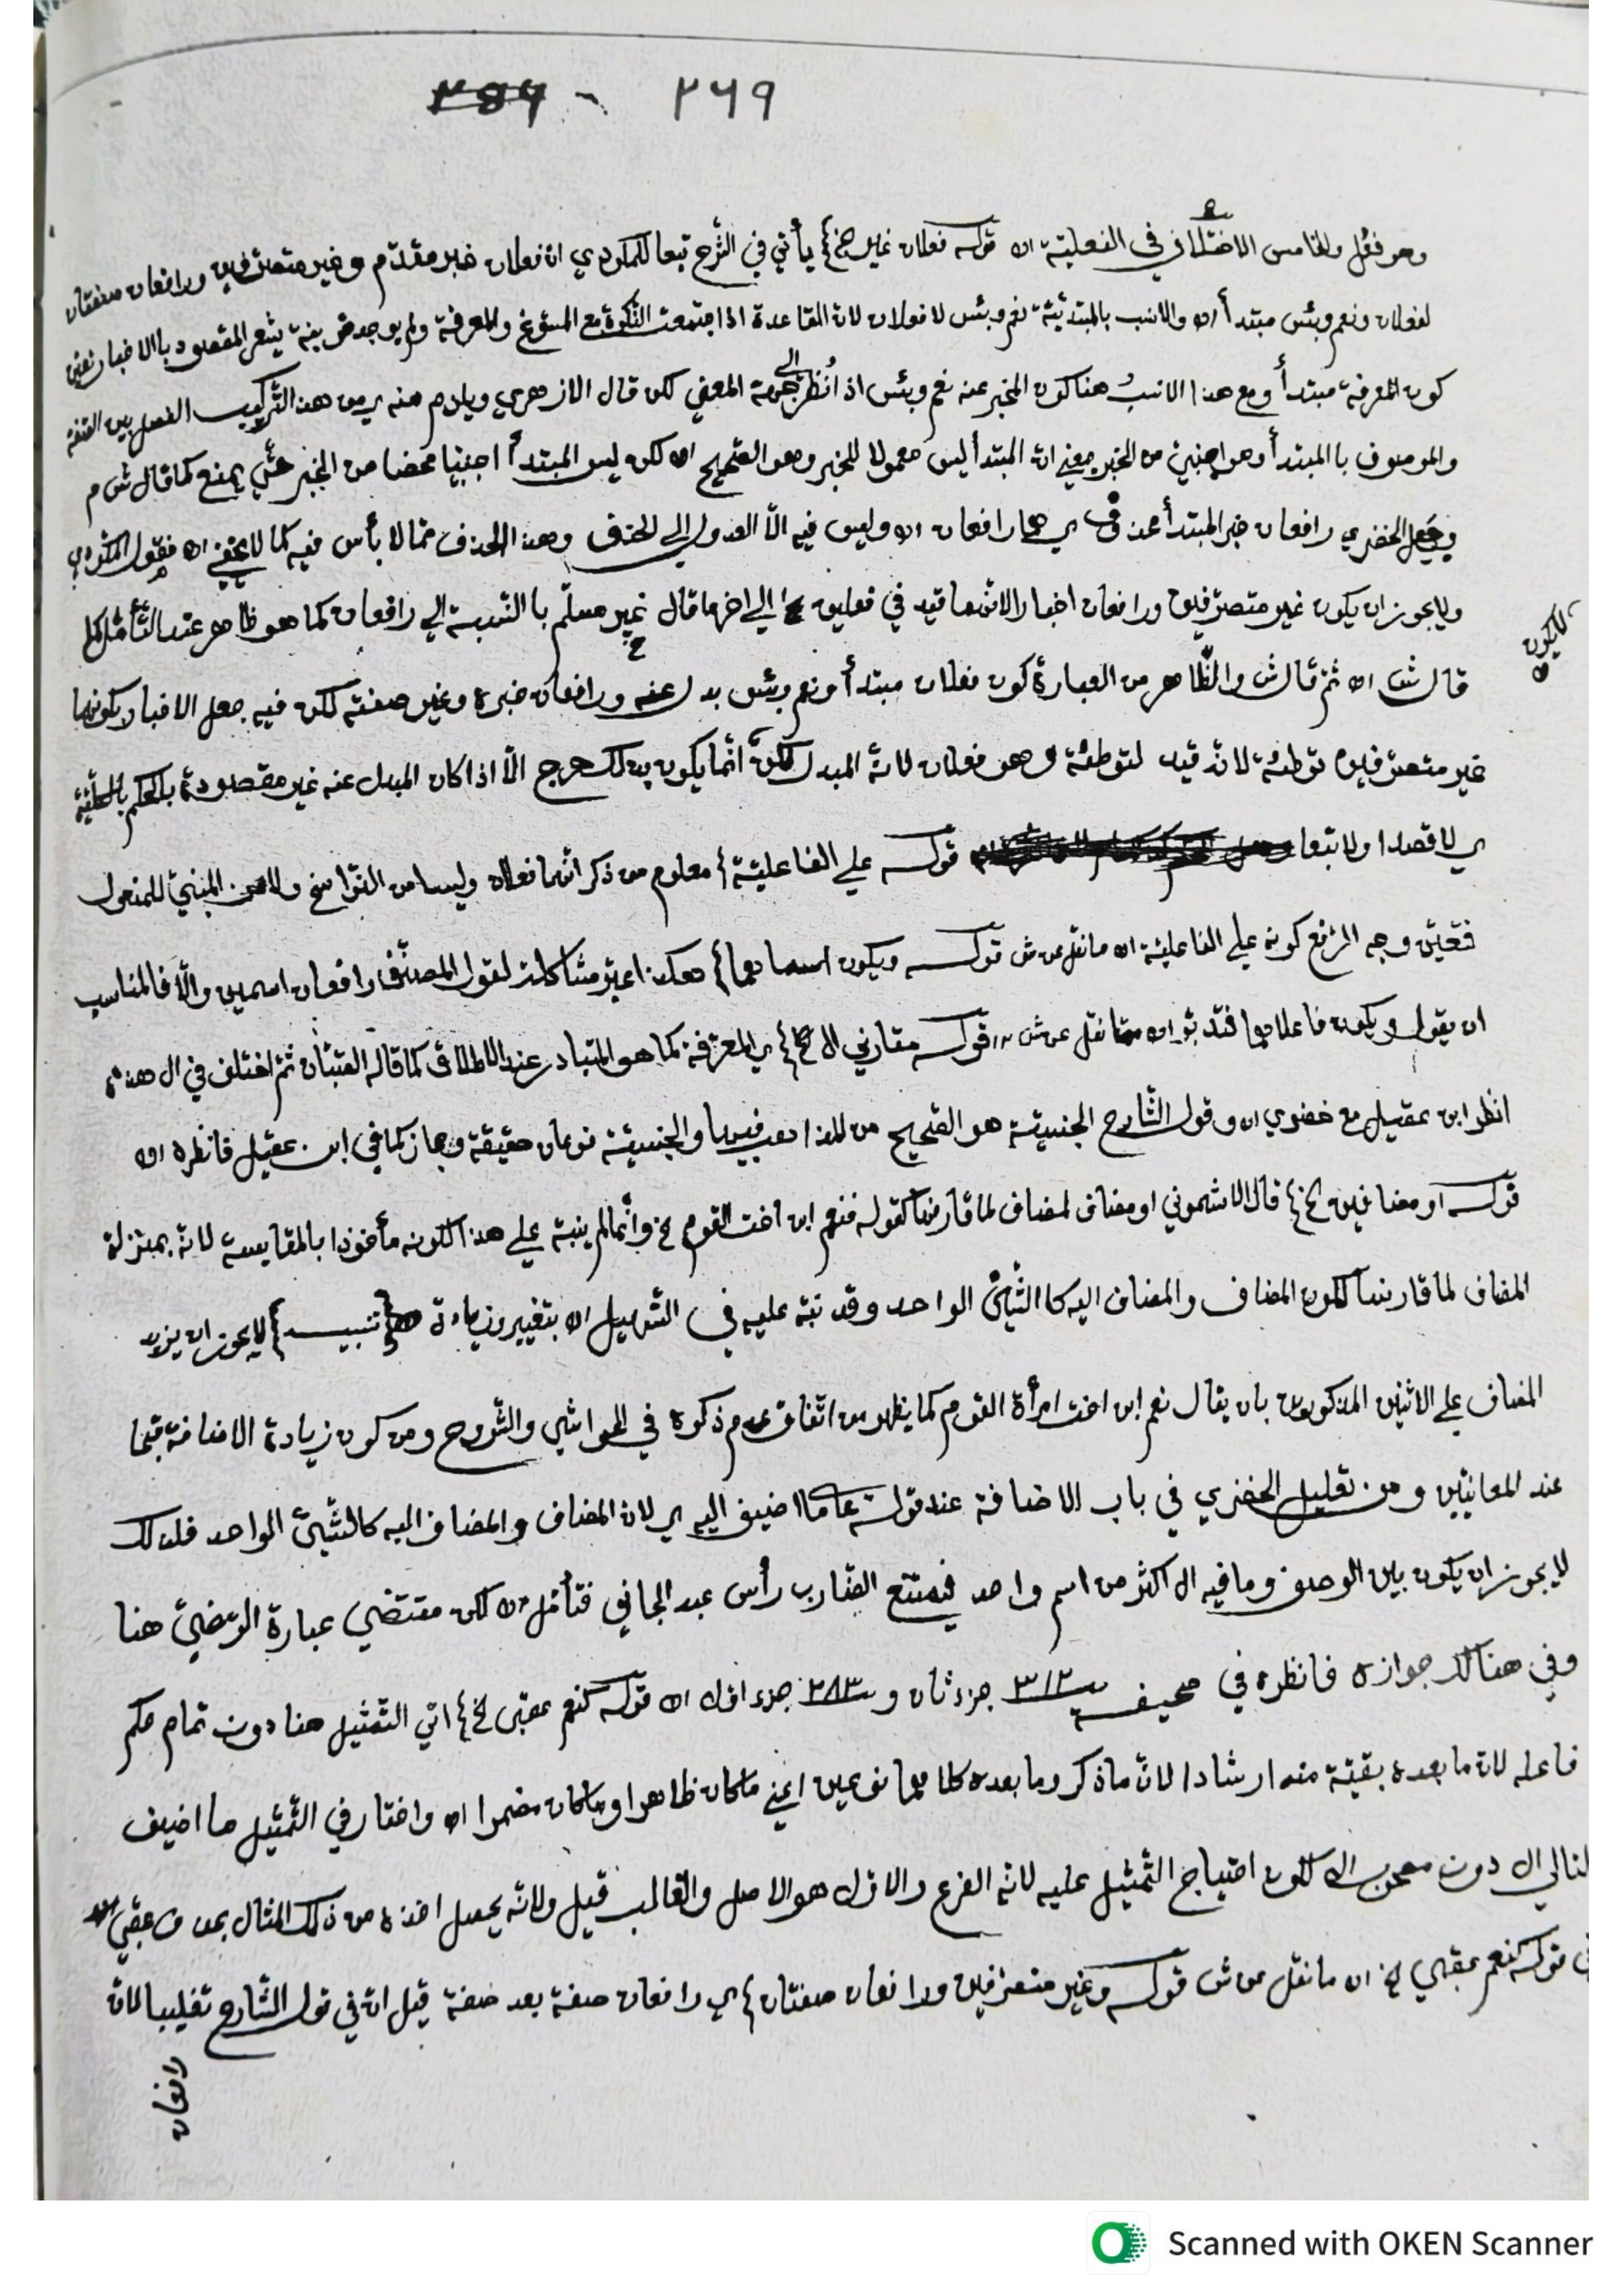 ٢٦٩ - ٢٥٦
وهو فعُل والخامس الاختلاف في الفعلية اه قوله فعلان غير الخ} يأتي في الشرح تبعا للمكودي ان فعلان خبر مقدّم وغير متصرّفين ورافعان صفتان
لفعلان ونعم وبئس مبتدأ اه والانسب بالمبتدئيّة نعم وبئس لا فعلان لان القاعدة اذا اجتمعت النّكرة مع المسوّغ والمعرفة ولم يوجد قرينة يشعر المقصود بالاخبار تعيّن
كون المعرفة مبتدأ ومع هذا الانسبُ هنا كون المخبر عنه نعم وبئس اذ اُنظر الى جهة المعنى لكن قال الازهري ويلزم منه ي من هذا التّركيب الفصل بين الصفة
والموصوف بالمبتدأ وهو اجنبيّ من الخبر بمعنى انّ المبتدأ ليس معمولا للخبر وهو الصّحيح اه لكن ليس المبتدأ اجنبيّا محضا من الخبر حتّى يمنع كما قال ش م
وجعل الخضري رافعان خبر المبتدأ محذوف ي هما رافعان اه وليس فيه الّا العدول الى الحذف وهذا الحذف ممّا لا بأس فيه كما لا يخفى اه فقول المكودي
ولا يجوز ان يكون غير متصرّفين ورافعان اخبارا لانّهما قيد في فعلين الى اخر ما قال غير مسلّم بالنّسبة الى رافعان كما هو ظاهر عند التّأمّل
قال ش اه ثمّ قال ش والظّاهر من العبارة كون فعلان مبتدأ ونعم وبئس بدل عنه ورافعان خبره وغير صفته لكن فيه جعل الاخبار بكونهما
غير متصرّفين توطئة لانّه قيد لتوطئة وهو فعلان لانّه المبدل لكنّ انّما يكون بذلك حرج الّا اذا كان المبدل عنه غير مقصودة بالحكم بالكلّيّة
ي لا قصدا ولا تبعا قوله على الفاعليّة} معلوم من ذكر انّهما فعلان وليسا من النّواسخ ولا من المبنيّ للمفعول
فتعيّن وجه الرّفع كونه على الفاعليّة اه ما نقل عن ش قوله ويكون اسما دهما} هكذا عبّر مشاكلة لقول المصنّف رافعان اسمين والّا فالمناسب
ان يقول ويكون فاعلاهما فتدبّر اه ما نقل عن ش قوله مقارني ال الخ} ي المعرّفة كما هو المتبادر عند الاطلاق كما قاله الصّبّان ثمّ اختلف في ال هذه
انظر ابن عقيل مع خضري اه وقول الشّارح الجنسيّة هو الصّحيح من المذاهب فيها والجنسيّة نوعان حقيقة ومجاز كما في ابن عقيل فانظره اه
قوله او مضافين الخ} قال الاشموني او مضاف لمضاف لما قارنها كقوله فنعم ابن اخت القوم الخ وانّما لم ينبّه على هذا لكونه مأخوذا بالمقايسة لانّه بمنزلة
المضاف لما قارنها لكون المضاف والمضاف اليه كالشّيئ الواحد وقد نبّه عليه في التّسهيل اه بتغيير وزيادة {تنبيه} لا يجوز ان يزيد
المضاف على الاثنين المذكورين بان يقال نعم ابن اخت امرأة القوم كما يظهر من اتّفاق عدم ذكره في الحواشي والشّروح ومن كون زيادة الاضافة قبحا
عند المعانيّين ومن تعليل الخضري في باب الاضافة عند قوله عاما اضيف اليه ي لان المضاف والمضاف اليه كالشّيئ الواحد فلذلك
لا يجوز ان يكون بين الوصف وما فيه ال اكثر من اسم واحد فيمتنع الضّارب رأس عبد الجاني فتأمّل اه لكن مقتضى عبارة الرّضيّ هنا
وفي هنالك جوازه فانظره في صحيفة ٣١٢ جزء ثان و ٢٨٣ جزء اوّل اه قوله كنعم عقبى الخ} اتى التّمثيل هنا دون تمام حكم
فاعله لانّ ما بعده بقيّة منه ارشادا لانّ ما ذكر وما بعده كلاهما نوعين اعني ما كان ظاهرا وما كان مضمرا اه واختار في التّمثيل ما اضيف
لتالي ال دون مصحوب ال لكون احتياج التّمثيل عليه لانّه الفرع والاوّل هو الاصل والغالب قيل ولانّه يحصل اخذه من ذلك المثال بحذف عقبى
في قوله كنعم عقبى الخ اه ما نقل عن ش قوله وغير متصرّفين ورافعان صفتان} ي رافعان صفة بعد صفة قيل انّ في قول الشّارح تغليبا لانّ
رافعان
لا يكون
Scanned with OKEN Scanner